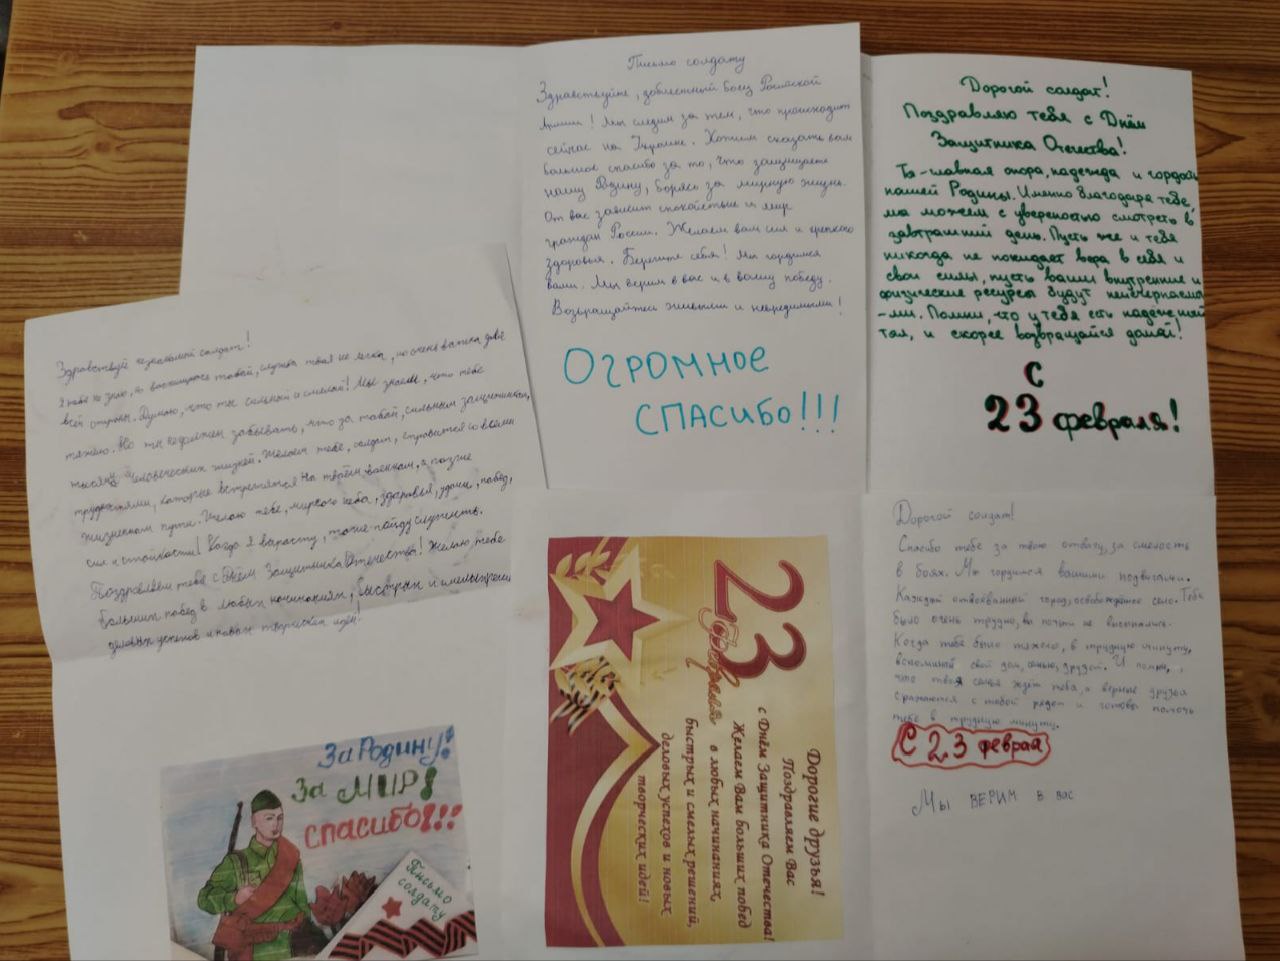 Письмо солдату
Здравствуйте, доблестный боец Российской
Армии! Мы следим за тем, что происходит
сейчас на Украине. Хотим сказать вам
большое спасибо за то, что защищаете
нашу Родину, борясь за мирную жизнь.
От вас зависит спокойствие и мир
граждан России. Желаем вам сил и крепкого
здоровья. Берегите себя! Мы гордимся
вами. Мы верим в вас и в вашу победу.
Возвращайтесь живыми и невредимыми!
ОГРОМНОЕ
СПАСИБО!!!
Дорогой солдат!
Поздравляю тебя с Днём
Защитника Отечества!
Ты-главная опора, надежда и гордость
нашей Родины. Именно благодаря тебе,
мы можем с уверенностью смотреть в
завтрашний день. Пусть же и тебя
никогда не покидает вера в себя и
свои силы, пусть ваши внутренние и
физические ресурсы будут неисчерпаемы
-ми. Помни, что у тебя есть надёжный
тыл, и скорее возвращайся домой!
С
23 февраля!
Здравствуй незнакомый солдат!
Я тебя не знаю, но восхищаюсь тобой, служба твоя не легка, но очень важна для
всей страны. Думаю, что ты сильный и смелый! Мы знаем, что тебе
тяжело. Но ты не должен забывать, что за тобой, сильным защитником,
тысячи человеческих жизней. Желаем тебе, солдат, справится со всеми
трудностями, которые встретятся на твоём военном, а позже
жизненном пути. Желаю тебе, мирного неба, здоровья, удачи, побед,
сил и стойкости! Когда я вырасту, тоже пойду служить.
Поздравляем тебя с Днём Защитника Отечества! Желаю тебе
больших побед в любых начинаниях, быстрых и смелых решений
деловых успехов и новых творческих идей!
За Родину!
За МИР!
спасибо!!!
Письмо
солдату
23
февраля
Дорогие друзья!
Поздравляем Вас
с Днём Защитника Отечества!
Желаем Вам больших побед
в любых начинаниях,
быстрых и смелых решений,
деловых успехов и новых
творческих идей!
Дорогой солдат!
Спасибо тебе за твою отвагу, за смелость
в боях. Мы гордимся вашими подвигами.
Каждый отвоёванный город, освобождённое село. Тебе
было очень трудно, вы почти не высыпались.
Когда тебе было тяжело, в трудную минуту,
вспоминай свой дом, семью, друзей. И помни,
что твоя семья ждёт тебя, а верные друзья
сражаются с тобой рядом и готовы помочь
тебе в трудную минуту.
С 23 феврая
Мы ВЕРИМ в вас